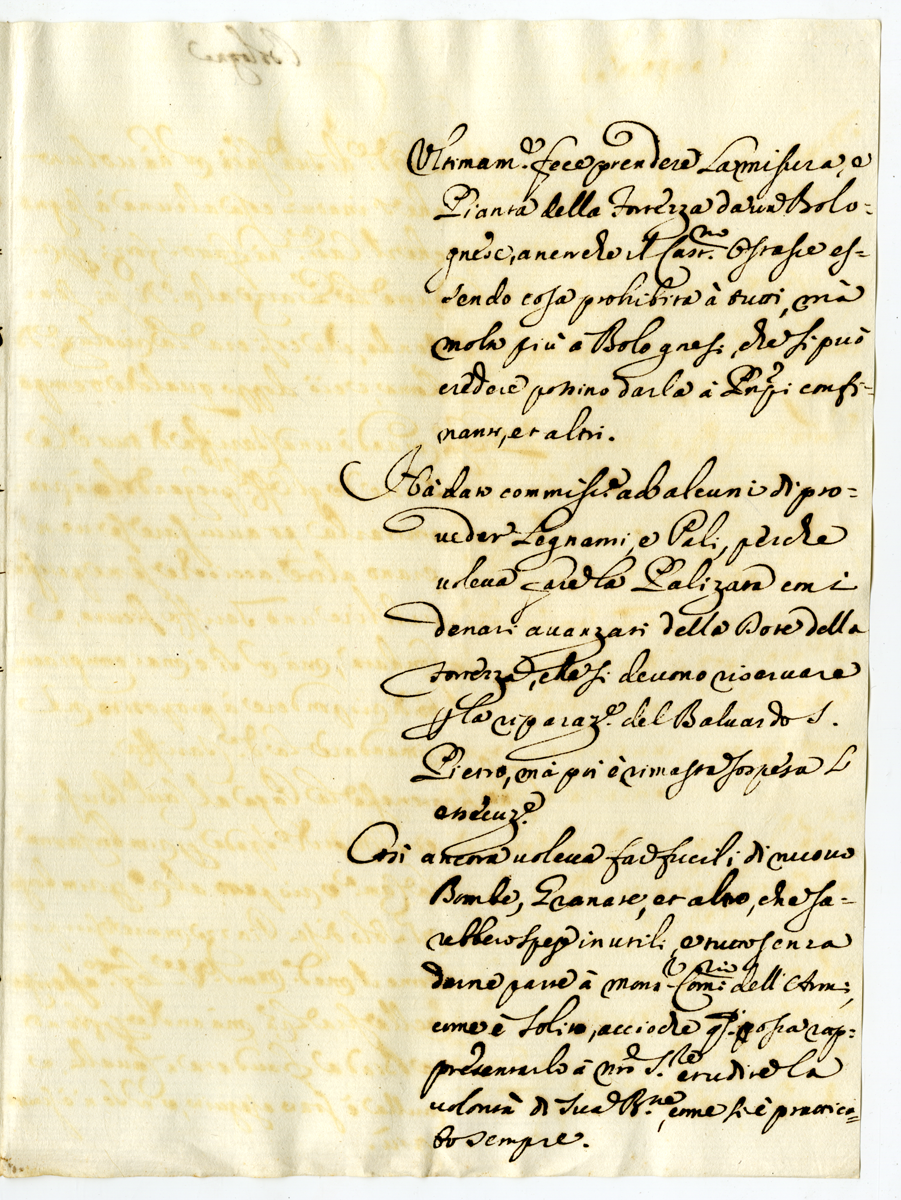 Ultimam.te fece prendere la misura, e
Pianta della Fortezza da un Bolo=
gnese, ancorche il Cast.no Ostasse es=
sendo cosa prohibita à tutti, mà
molto più à Bolognesi, che si può
credere possino darla à Pnpi confi=
nanti, et altri.
Hà dato commiss.e ad alcuni di pro=
veder Legnami, e Pali, perche
voleva fare la Palizata con i
denari avanzati della Dote della
Fortezza, che si devono riservare
p la riparaz.e del Baluardo S.
Pietro, mà poi è rimasta sospesa L
essecuz.e
Così ancora voleva far fucili, di nuovo
Bombe, Granate, et altro, che sa=
rebbero spese inutili, e tutto senza
darne parte à Mons.r Com.rio dell' Armi,
come è solito, acciòche possa rap=
presentarlo à nr̃o S.re et udire la
volontà di Sua B.ne, come si è pratica=
to sempre.